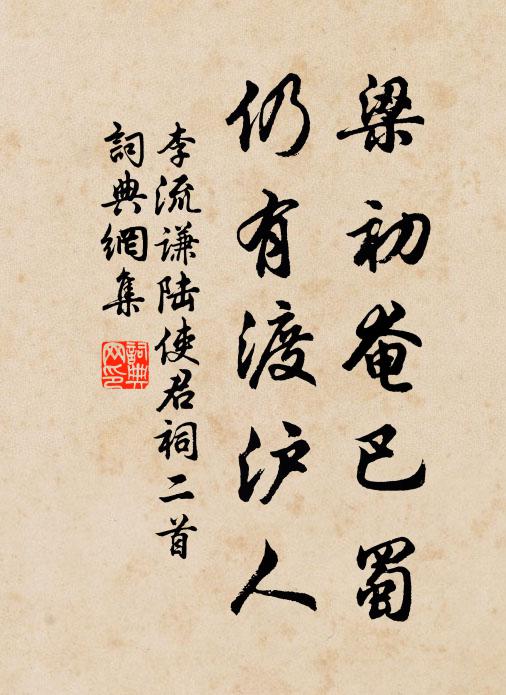 梁初奄巴蜀
仍有渡沪人
李流谦陆使君祠二首
詞典網集
詞典网印